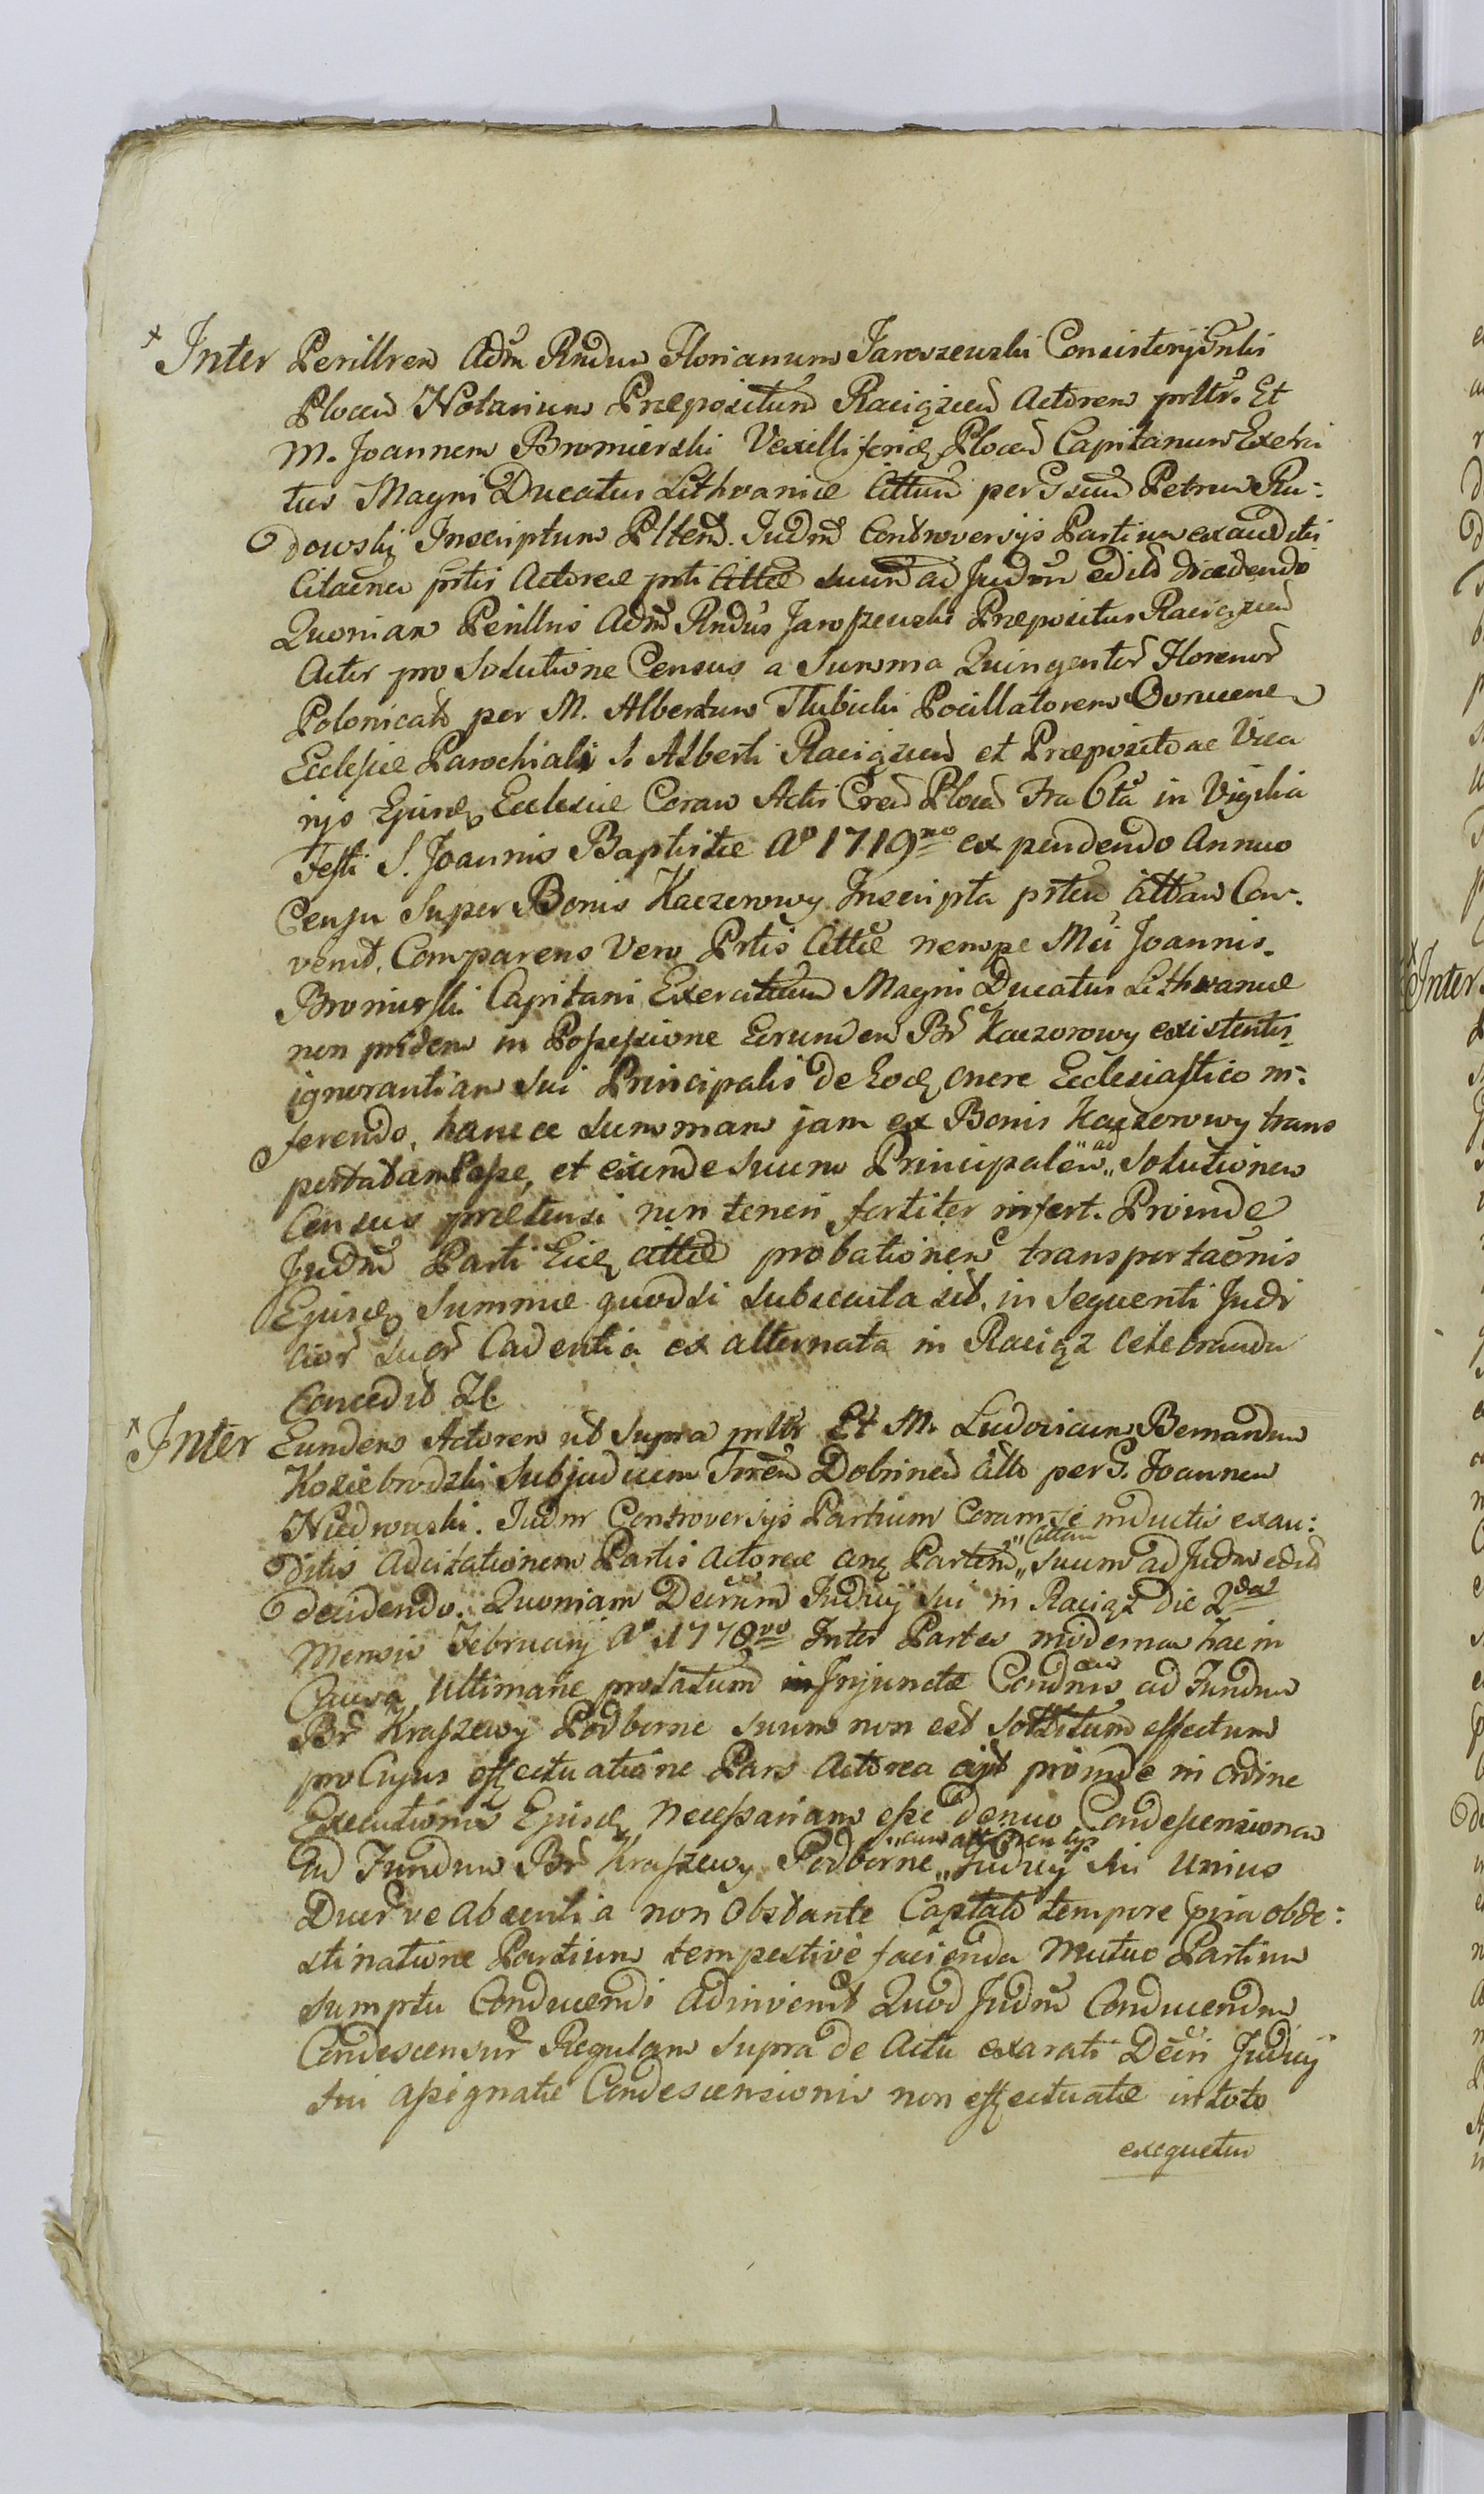 Inter Perillrem Adm Rndum Florianum Jaroszewski Consistorij Gnlis
Plocen Notarium Præpositum Raciązen Actorem prltr. Et
M. Joannem Bromierski Vexilliferidę Plocen Capitanum Exerci
tus Magni Ducatus Lithvaniæ Cittum per Gsum Petrum Ru:
dowski Inscriptum Pltem. Judm Controversijs Partium exauditis
Citaõnem prtis Actoreæ prti Cittæ suum ad Judm edito decidendo
Quoniam Perillris Adm Rndus Jaroszewski Præpositus Raciązen
Actor pro Solutione Census a Summa Quingentor Florenor
Polonical per M. Albertum Tłubicki Pocillatorem
Ecclesiæ Parochiali S. Alberti Raciązen et Præposito ac Vica
rijs Ejusdę Ecclesiæ Coram Actis Cren Plocen Fra 6ta in Vigilia
Festi S. Joannis Baptistæ A° 1719no ex pendendo Annuo
Censu Super Bonis Kaczorowy Inscripta prtem Cittam Con-
venit. Comparens Vero Prtis Cittæ nempe Mci Joannis
Bromierski Capitani Exercituum Magni Ducatus Lithvaniæ
non pridem in Possessione Eorundem Br Kaczorowy existentis
ignorantiam sui Principalis de Eodę onere Ecclesiastico in:
ferendo, hancce Summam jam ex Bonis Kaczorowy trans
portatam esse, et exinde Suum Principalem „ad„ Solutionem
Census prætensi non teneri fortiter infert. Proinde
Judm Parti Eidę Cittæ probationem transportaõnis
Ejusdę Summæ quodsi subsecuta sit, in Sequenti Judi
cior suor Cadentia ex alternata in Raciąz celebranda
Concedit Zl.
Inter Eundem Actorem ut Supra prltr Et M. Ludovicum Bernardum
Koziebrodzki Subjudicem Trren Dobrinen Citto per G. Joannem
Niedwuski. Judm Controversijs Partium Coram se inductis exau:
ditis Adcitationem Partis Actoreæ anę Partem „Cittam„ Suum ad Judm edito
decidendo. Quoniam Decrum Judicij Sui in Raciąz die 2da
Mensis Februarij A° 1778vo Inter Partes modernas hac in
Causa Ultimarie prolatum Injunctæ Condnis ad Fundum
Br Kraszewy Podborne suum non est Sortitum effectum
pro Cujus effectuatione Pars Actorea ajit proinde in ordine
Executionis Ejusdę necessariam esse denuo Condescensionem
Ad Fundum Br Kraszewy Podborne „ Judicij Sui Unius
Duor ve absentia non Obstante Captato tempore præobde:
stinatione Partium tempestive facienda Mutuo Partium
Sumptu Conducendi Adinvenit Quod Judm Conducendum
Condescensur Regulam Supra de Actu exarati Decri Judicij
Sui assignatæ Condescensionis non effectuatæ in toto
exequetur
Inter